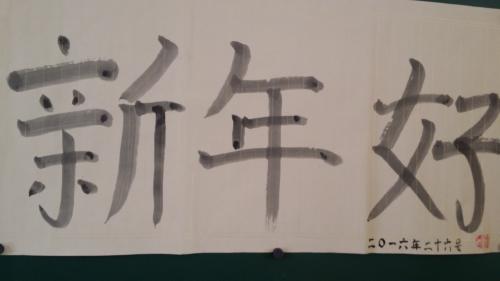 新年好
二〇一六年二十六号